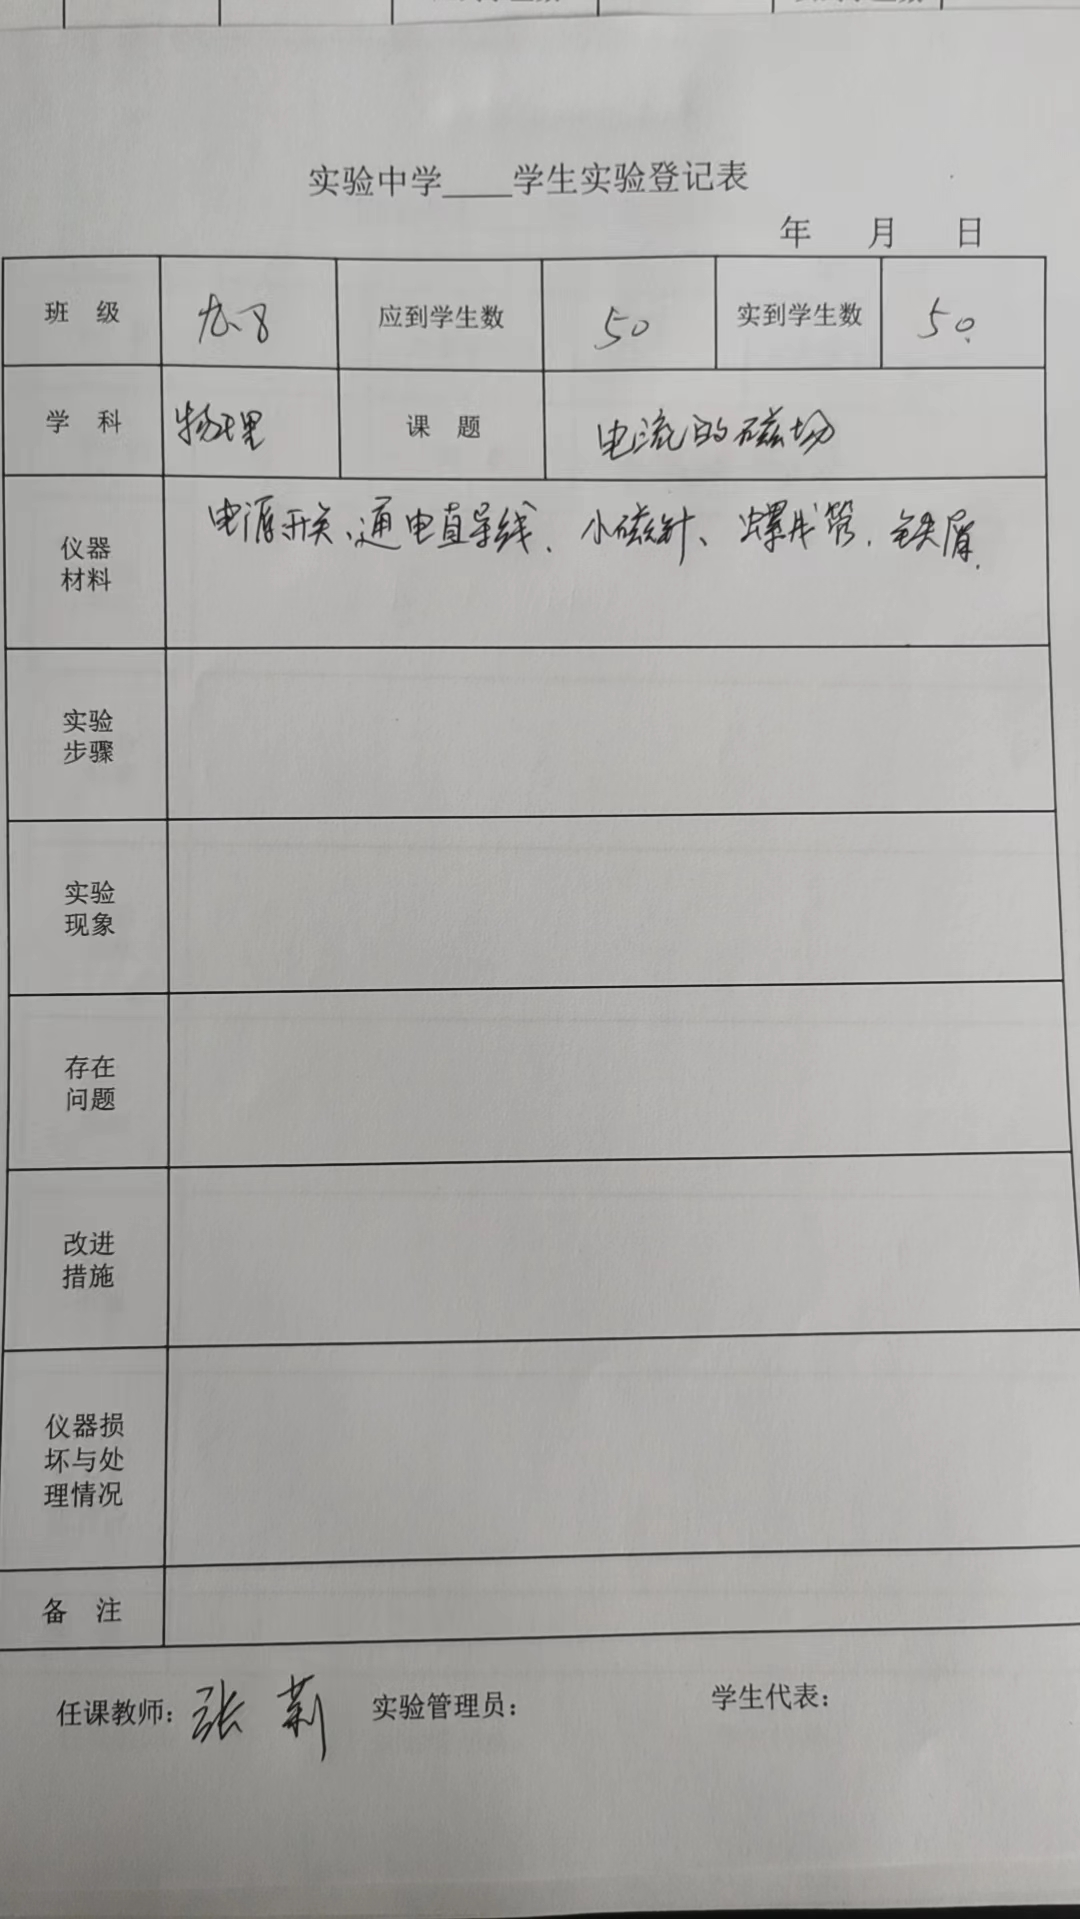 实验中学____学生实验登记表
年 月 日
班 级 九.8 应到学生数 50 实到学生数 50.
学 科 物理 课 题 电流的磁场
仪器
材料
电源开关、通电直导线、小磁针、螺线管、铁屑.
实验
步骤
实验
现象
存在
问题
改进
措施
仪器损
坏与处
理情况
备 注
任课教师：张莉 实验管理员： 学生代表：